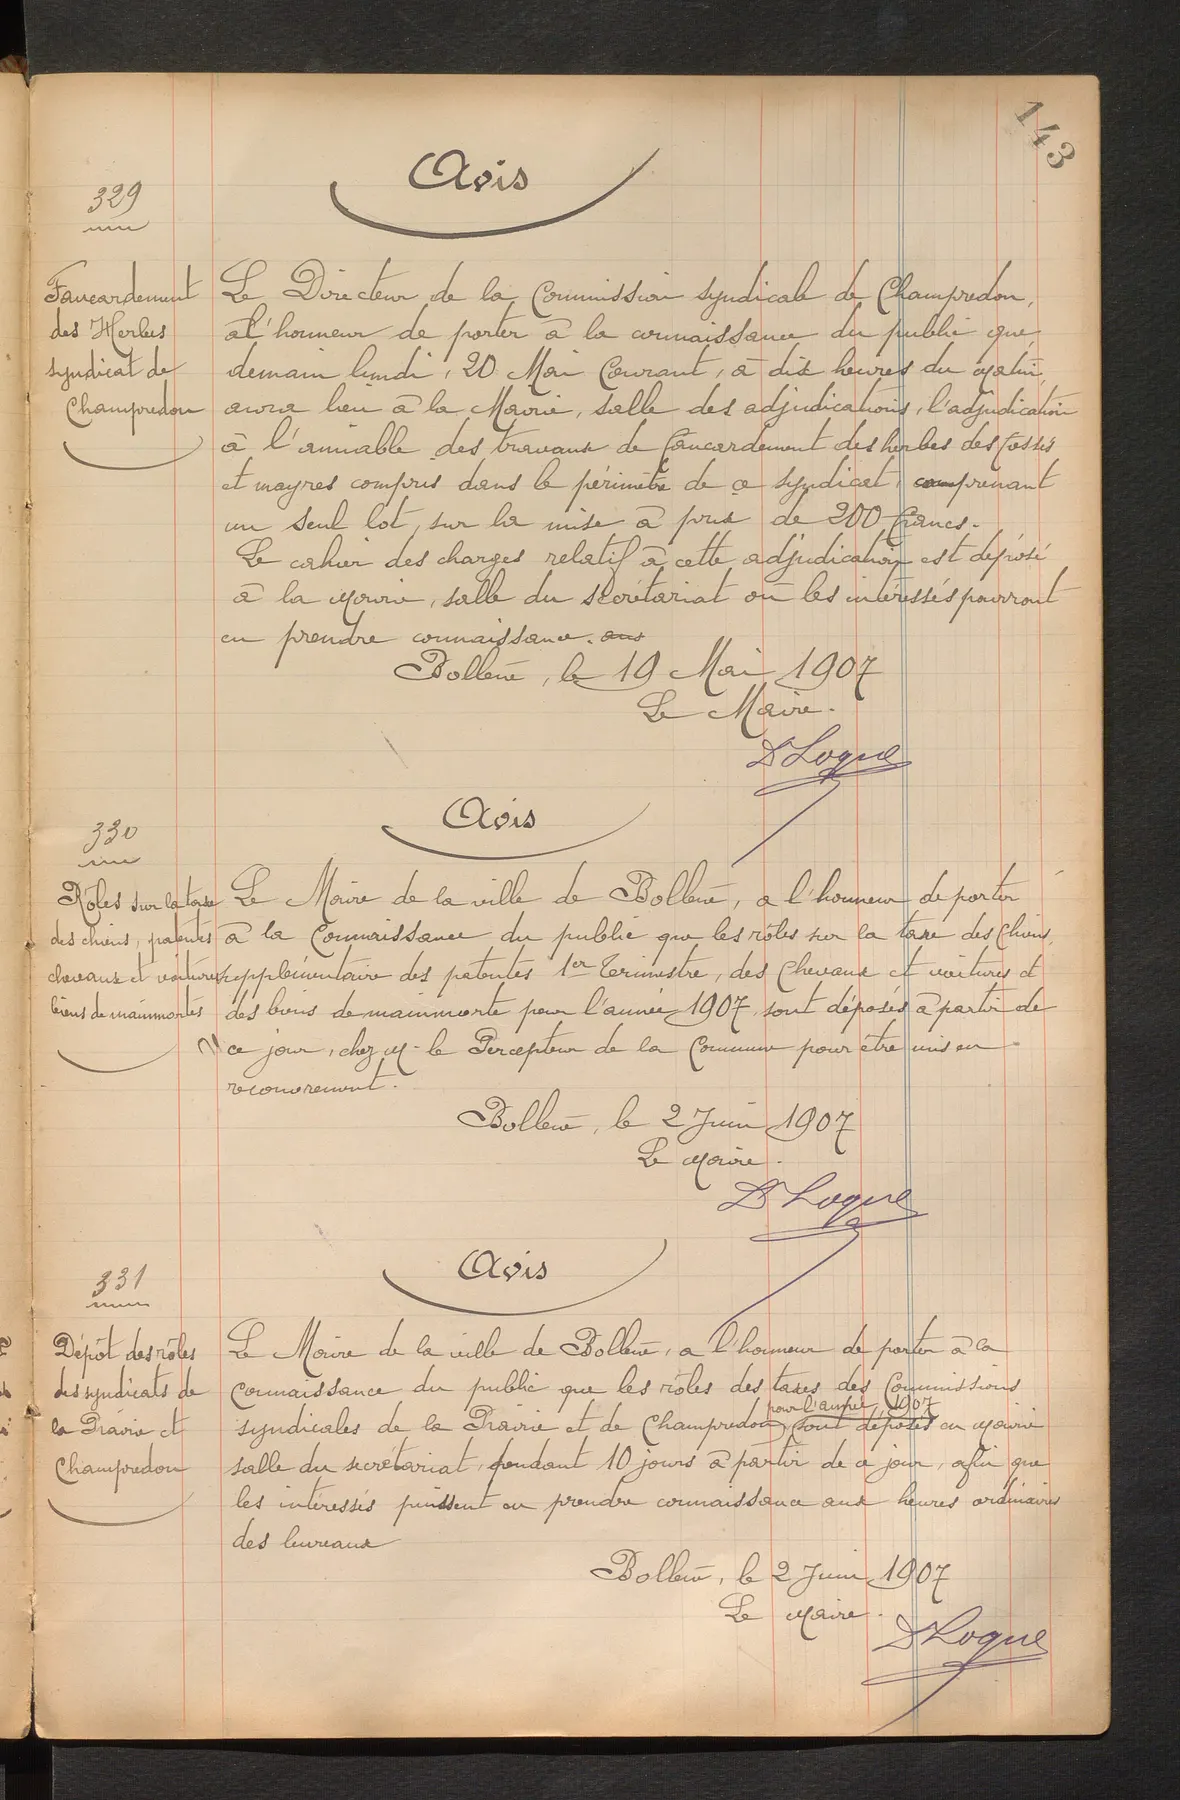 143
Avis
329
Faucardement
des Herbes
syndicat de
Champredon
Le Directeur de la Commission syndicale de Champredon,
a l'honneur de porter à la connaissance du public que,
demain lundi, 20 Mai Courant, à dix heures du matin,
aura lieu à la Mairie, salle des adjudications, l'adjudication
à l'amiable des travaux de faucardement des herbes des fossés
et mayres compris dans le périmètre de ce syndicat, comprenant
un seul lot, sur la mise à prix de 200 francs.
Le cahier des charges relatif à cette adjudication est déposé
à la mairie, salle du secrétariat où les intéressés pourront
en prendre connaissance. aux
Bollène, le 19 Mai 1907
Le Maire.
Dr Loque
Avis
330
Rôles sur la taxe
des chiens, patentes
chevaux et voitures
biens de mainmortes
Le Maire de la ville de Bollène, a l'honneur de porter
à la Connaissance du public que les rôles sur la taxe des Chiens,
supplémentaire des patentes 1er Terimestre, des Chevaux et voitures et
des biens de mainmorte pour l'année 1907, sont déposés à partir de
ce jour, chez M. le Percepteur de la Commune pour être mis en
recouvrement.
Bollène, le 2 Juin 1907
Le Maire.
Dr Loque
Avis
331
Dépôt des rôles
des syndicats de
la Prairie et
Champredon
Le Maire de la ville de Bollène, a l'honneur de porter à la
Connaissance du public que les rôles des taxes des Commissions
pour l'année 1907
syndicales de la Prairie et de Champredon, sont déposés en mairie
salle du secrétariat, pendant 10 jours à partir de ce jour, afin que
les intéressés puissent en prendre connaissance aux heures ordinaires
des bureaux
Bollène, le 2 Juin 1907
Le Maire.
Dr Loque